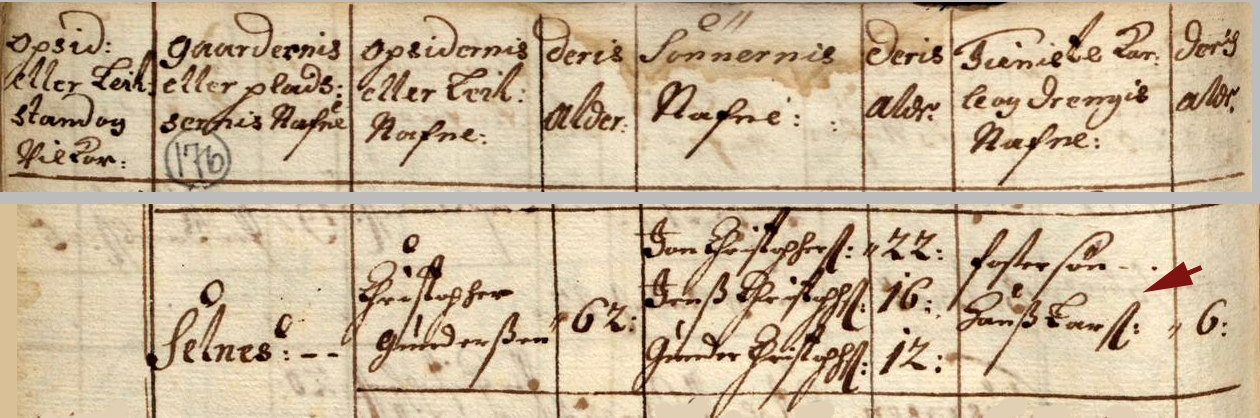 opsid:
eller Leil:
stand og
Vilkor:
gaardernis
eller plads:
sernis Nafne
176
opsidernis
eller Leil:
Nafne:
deris
alder:
Sønnernis
Nafne:
deris
aldr:
Tieniste Kar:
le og Drengis
Nafne:
deris
aldr:
Selnes: --
Christopher
Gunderßen
62:
Jon Christophers: 22:
Jenß Christophß: 16:
Gunder Christophß: 12:
foster søn
Hanß Larß: 6: